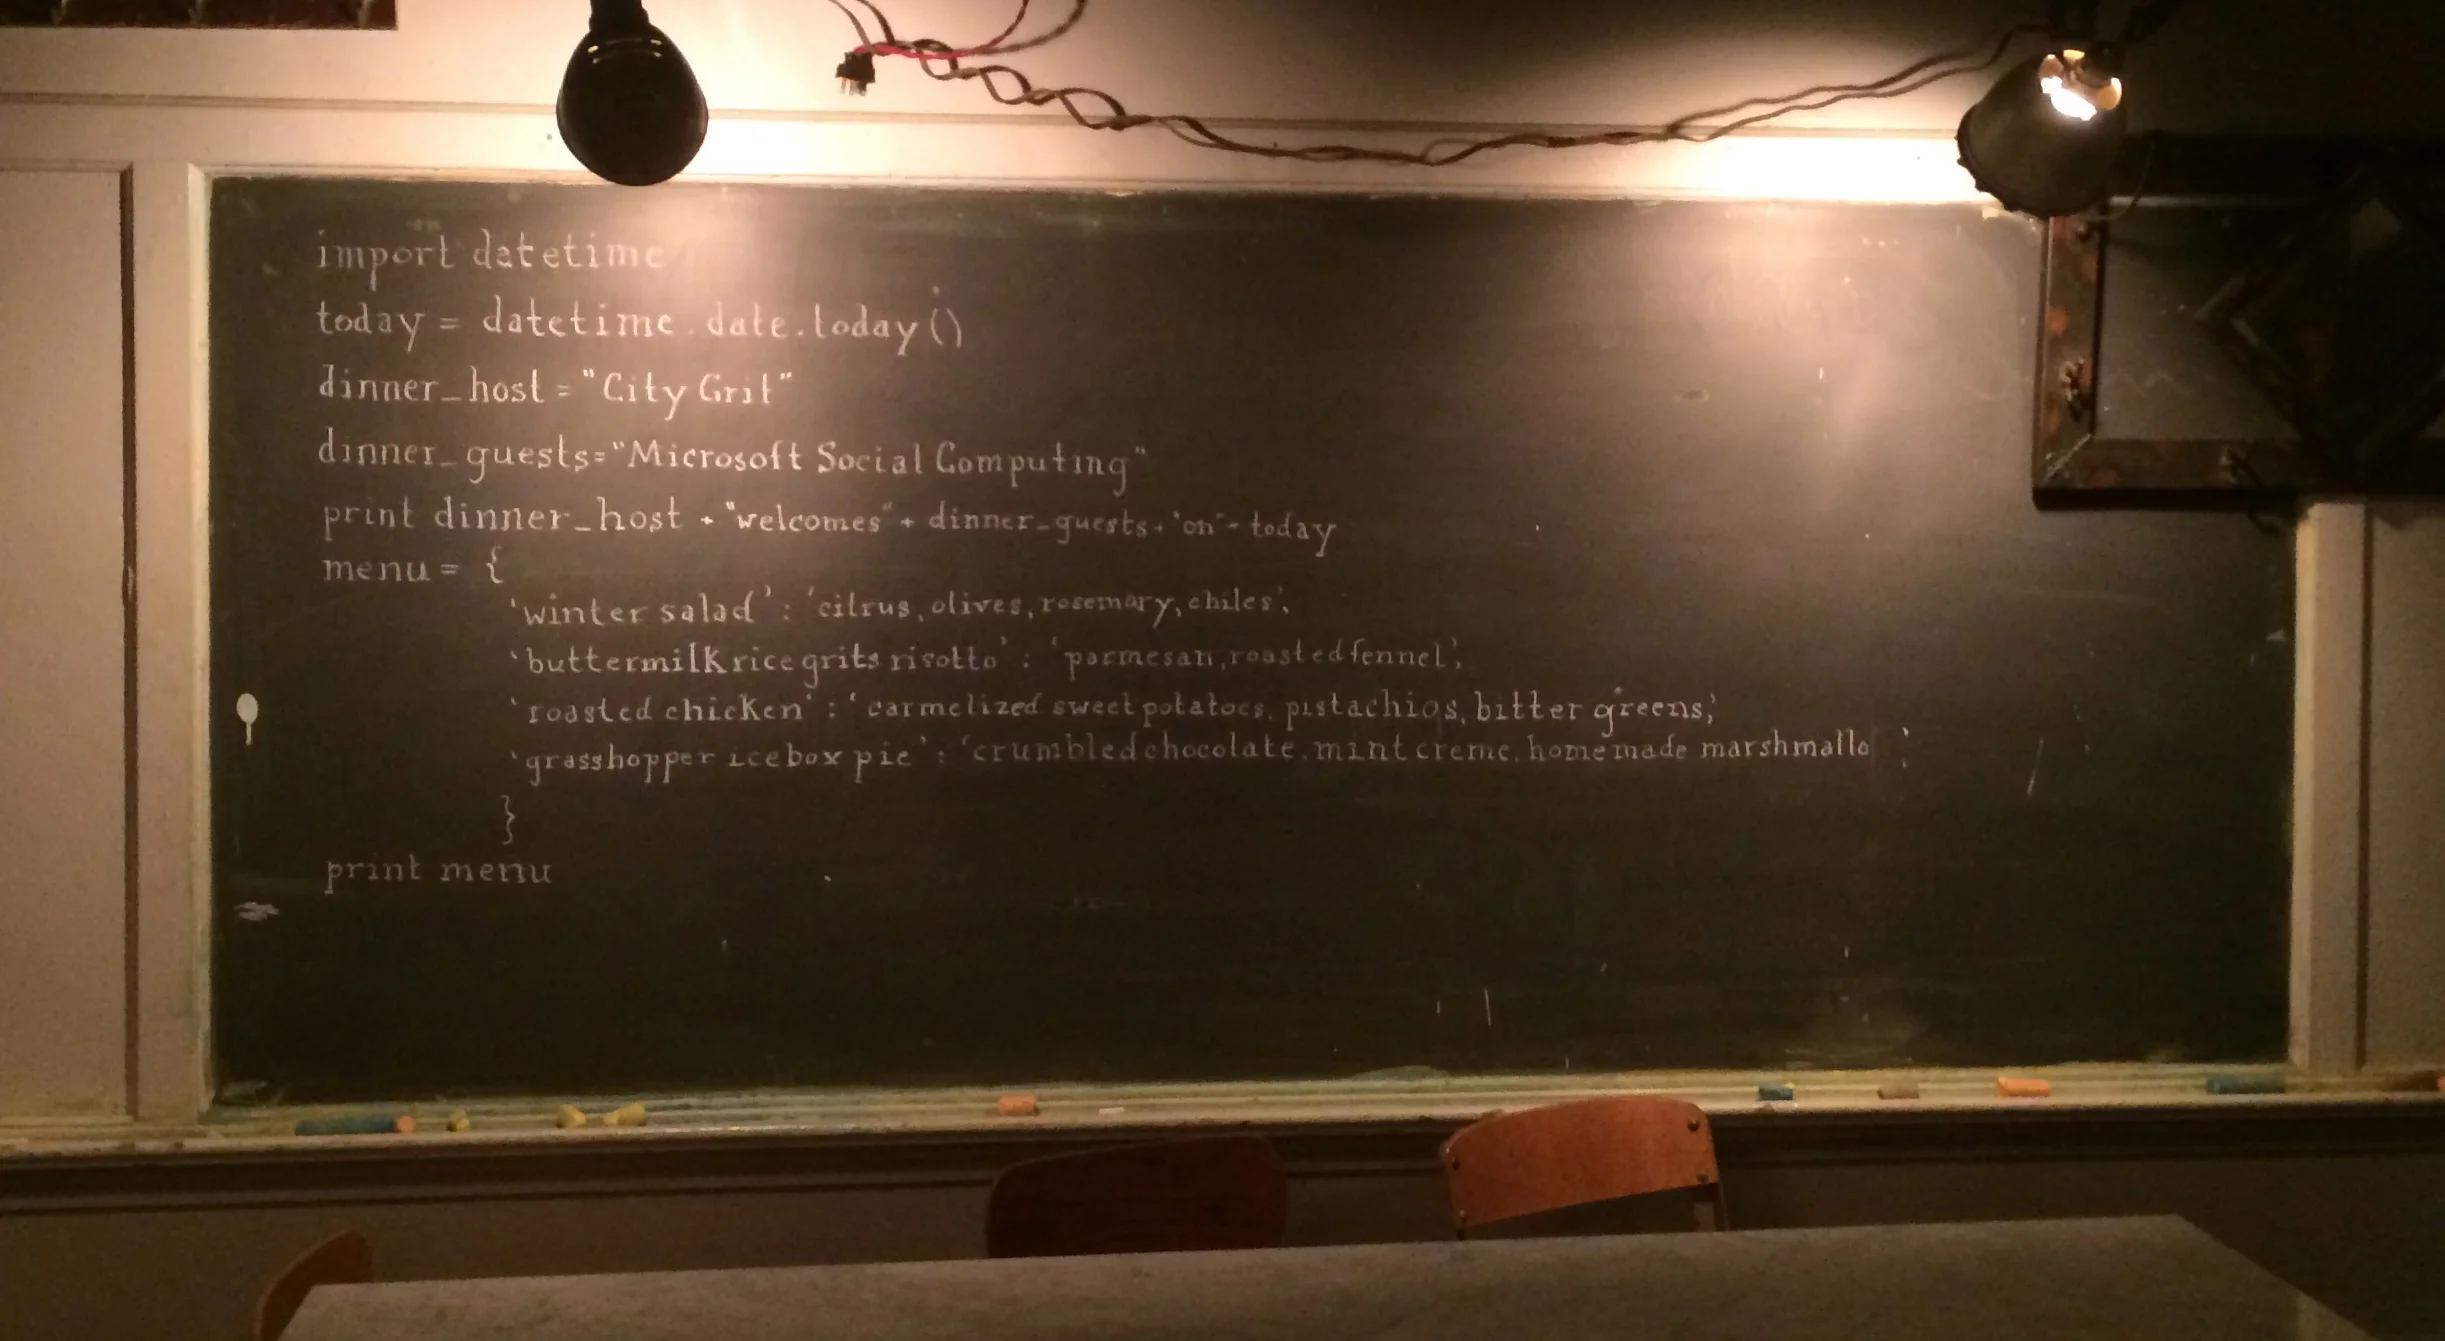 import datetime
today = datetime.date.today()
dinner_host = "City Grit"
dinner_guests="Microsoft Social Computing"
print dinner_host + "welcomes" + dinner_guests + "on" + today
menu = {
'winter salad' : 'citrus, olives, rosemary, chiles',
'buttermilk rice grits risotto' : 'parmesan, roasted fennel',
'roasted chicken' : 'carmelized sweet potatoes, pistachios, bitter greens,'
'grasshopper icebox pie' : 'crumbled chocolate, mint creme, homemade marshmallo ',
}
print menu